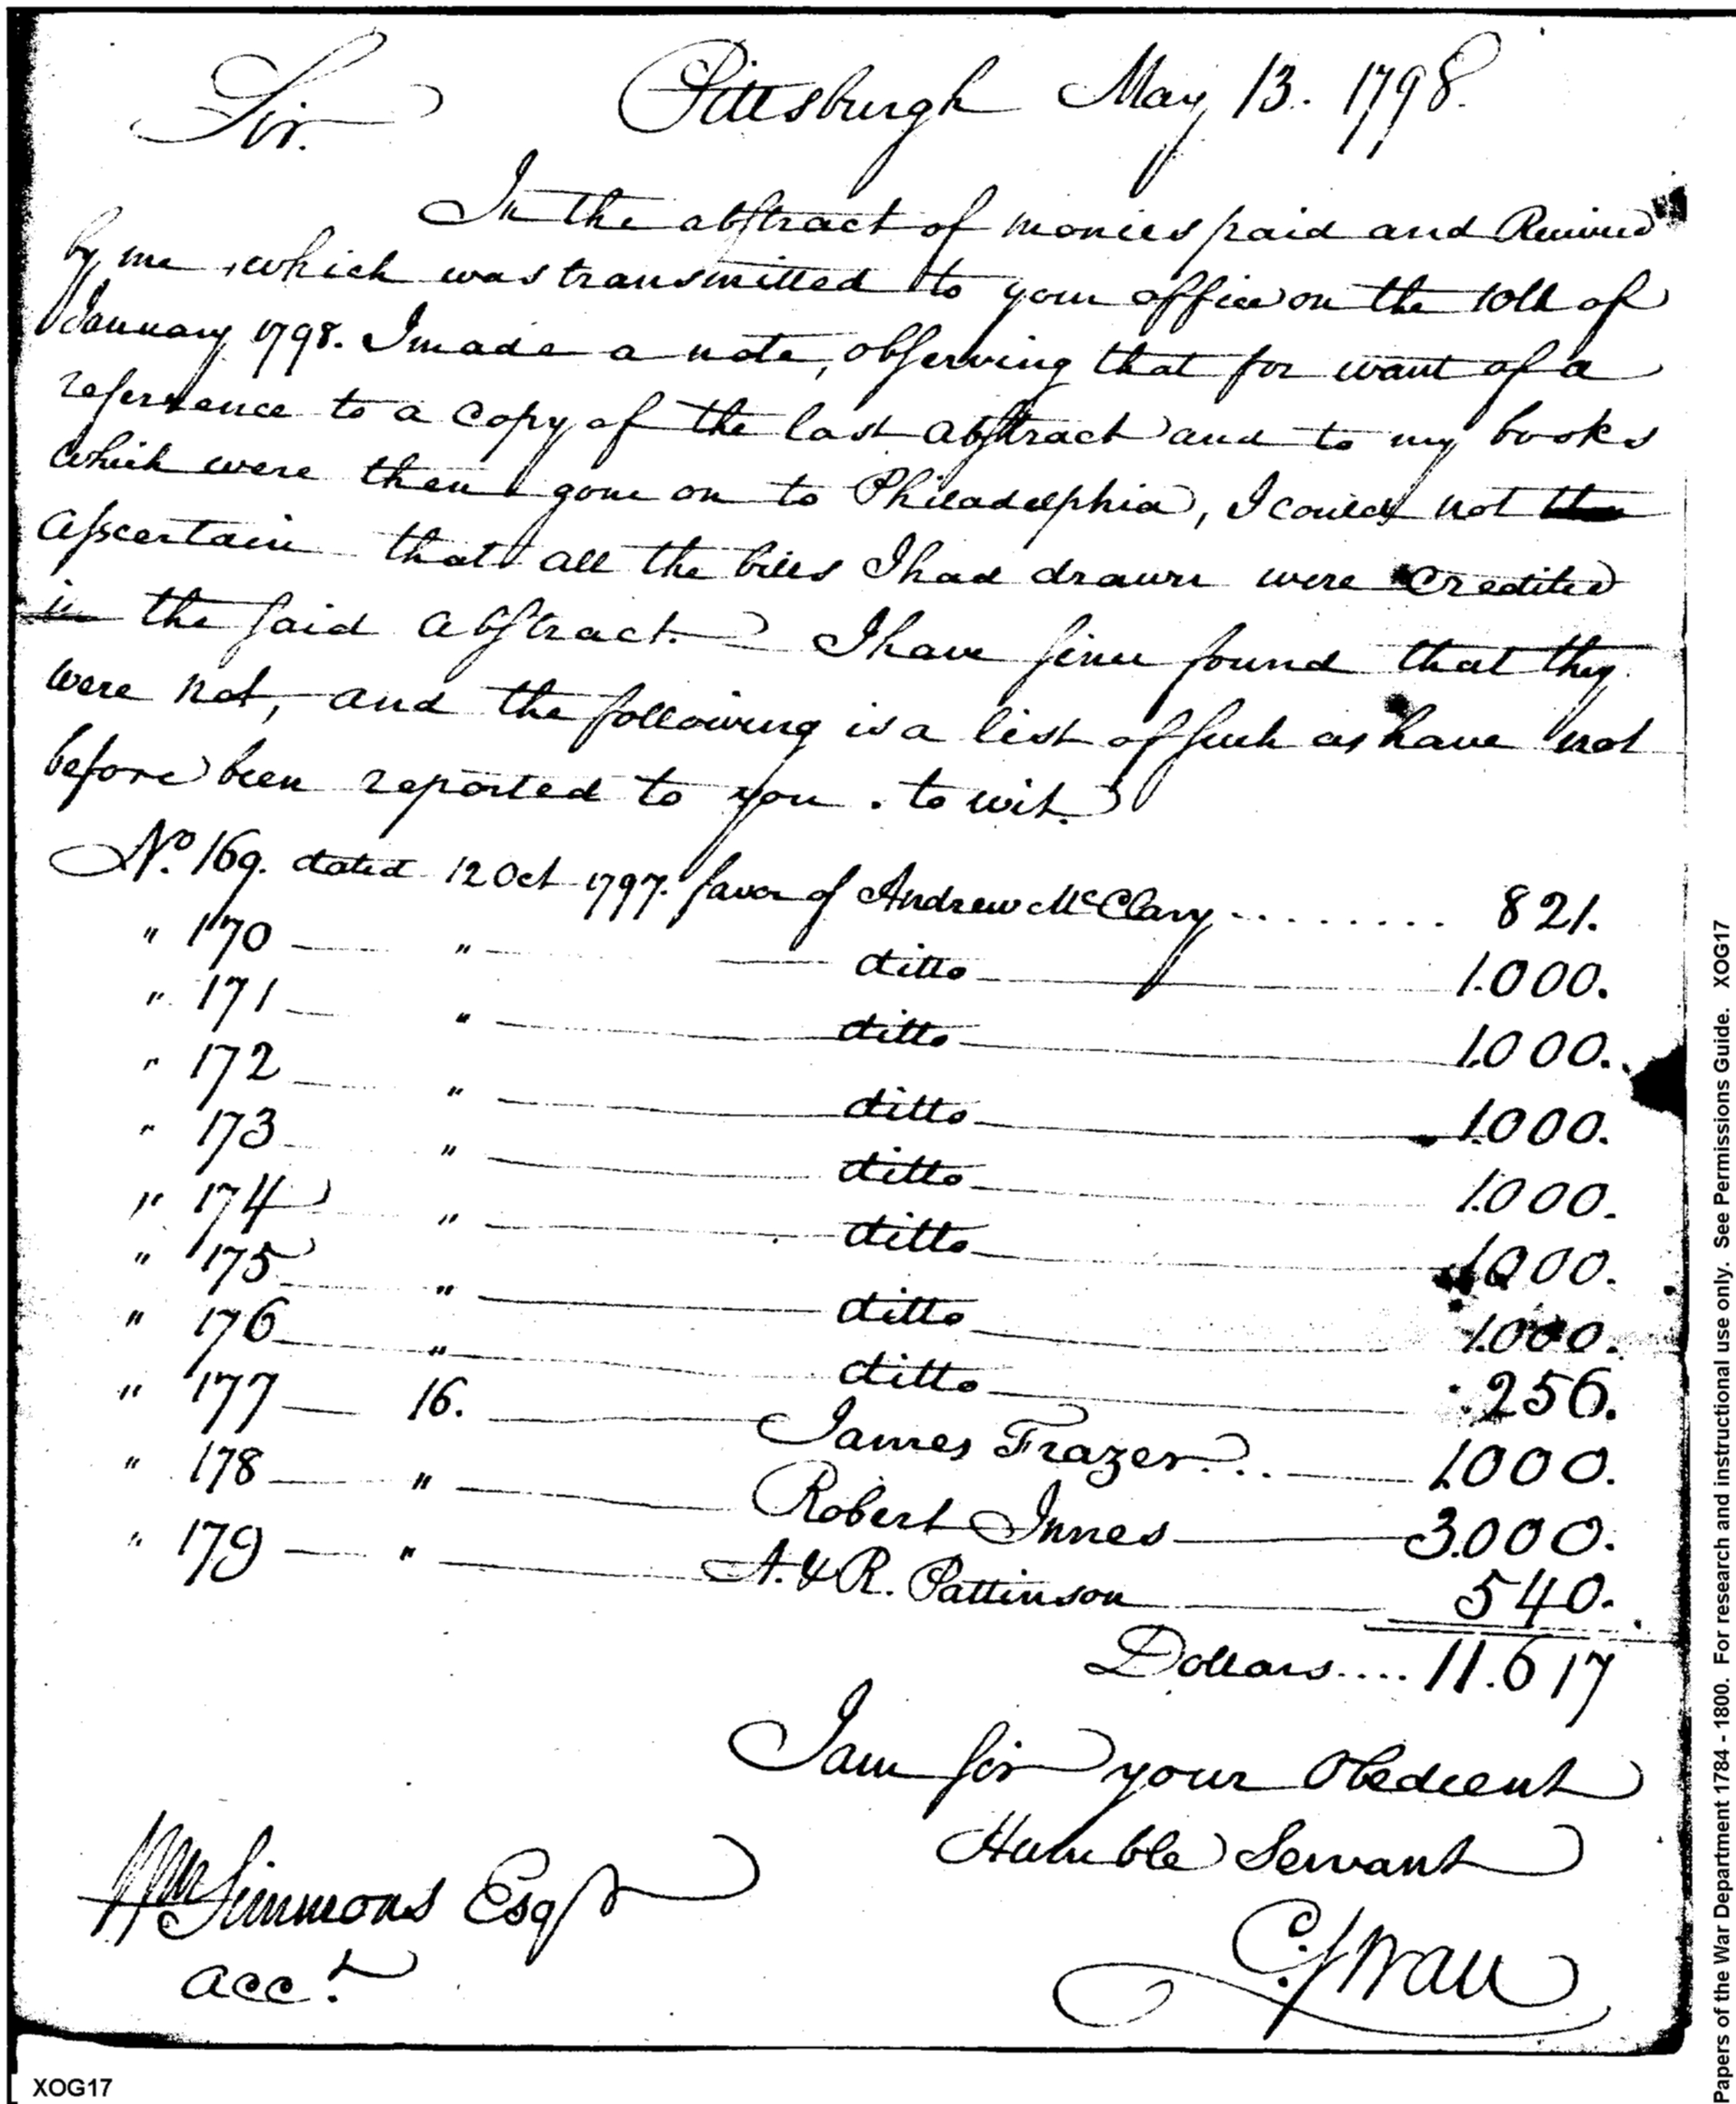 Sir. Pittsburgh May 13. 1798.
In the abstract of monies paid and Received
by me, which was transmitted to your office on the 10th of
January 1798. I made a note, observing that for want of a
referrence to a copy of the last abstract and to my books
which were then gone on to Philadelphia, I could not
Asscertain that all the bills I had drawn were Credited
in the said abstract. I have since found that they
were not, and the following is a list of such as have not
before been reported to you. to wit.
No. 169. dated 12 Oct 1797. favor of Andrew McClary ........ 821.
" 170 — " — ditto — 1.000.
" 171 — " — ditto — 1.000.
" 172 — " — ditto — 1.000.
" 173 — " — ditto — 1.000.
" 174 — " — ditto — 1.000.
" 175 — " — ditto — 1.000.
" 176 — " — ditto — 256.
" 177 — 16. — James Frazer... — 1.000.
" 178 — " — Robert Innes — 3.000.
" 179 — " — A. & R. Pattinson — 540.
Dollars.... 11.617
I am sir your Obedient
Humble Servant
C. Swan
Wm Simmons Esqr
Acct.
XOG17
Papers of the War Department 1784 - 1800. For research and instructional use only. See Permissions Guide. XOG17